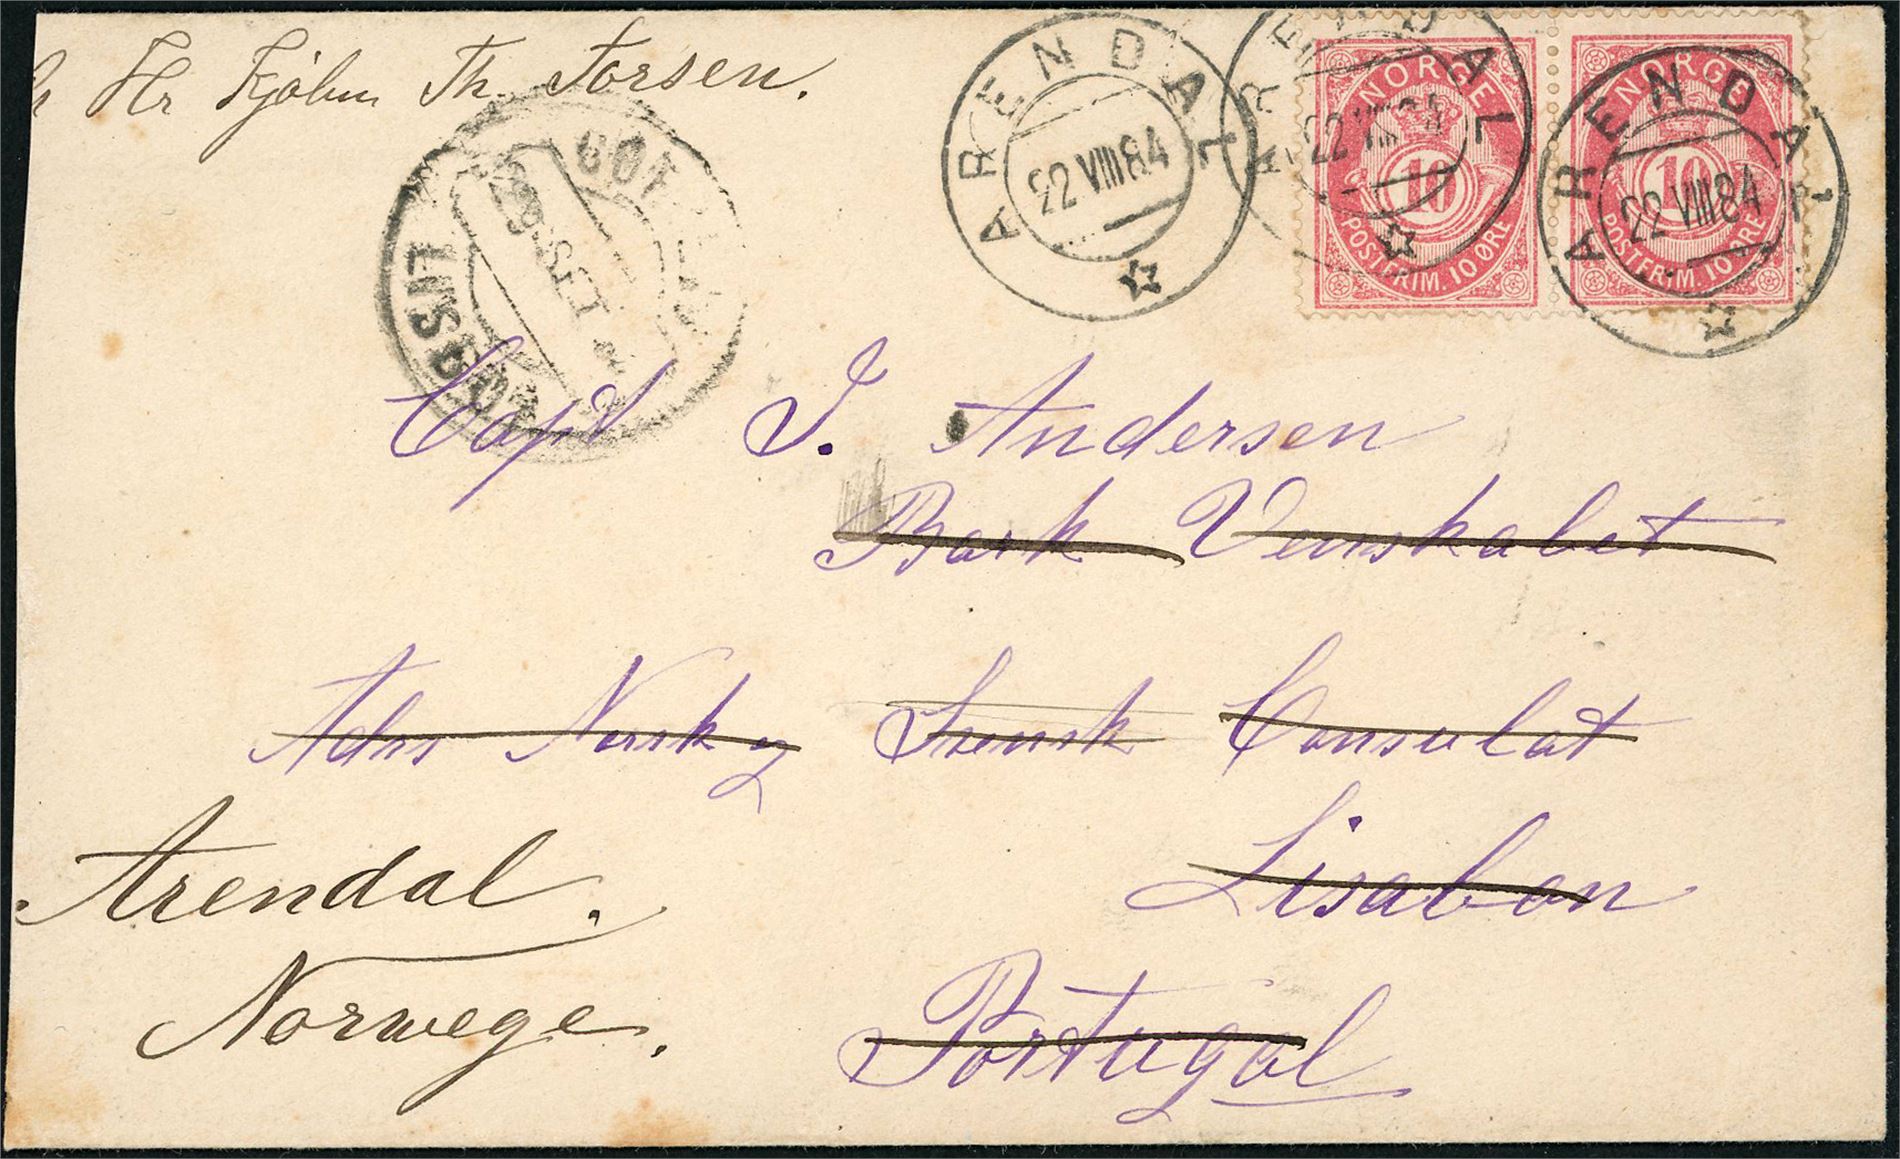 Hr Kjöbm Th. Torsen.
ARENDAL
22 VIII 84
ARENDAL
22 VIII 84
ARENDAL
22 VIII 84
NORGE
10
POSTFRIM. 10 ØRE
NORGE
10
POSTFRIM. 10 ØRE
Capt J. Andersen
Bark Venskabet
Adrs Norsk og Svensk Consulat
Lisabon
Portugal
Arendal.
Norwege.